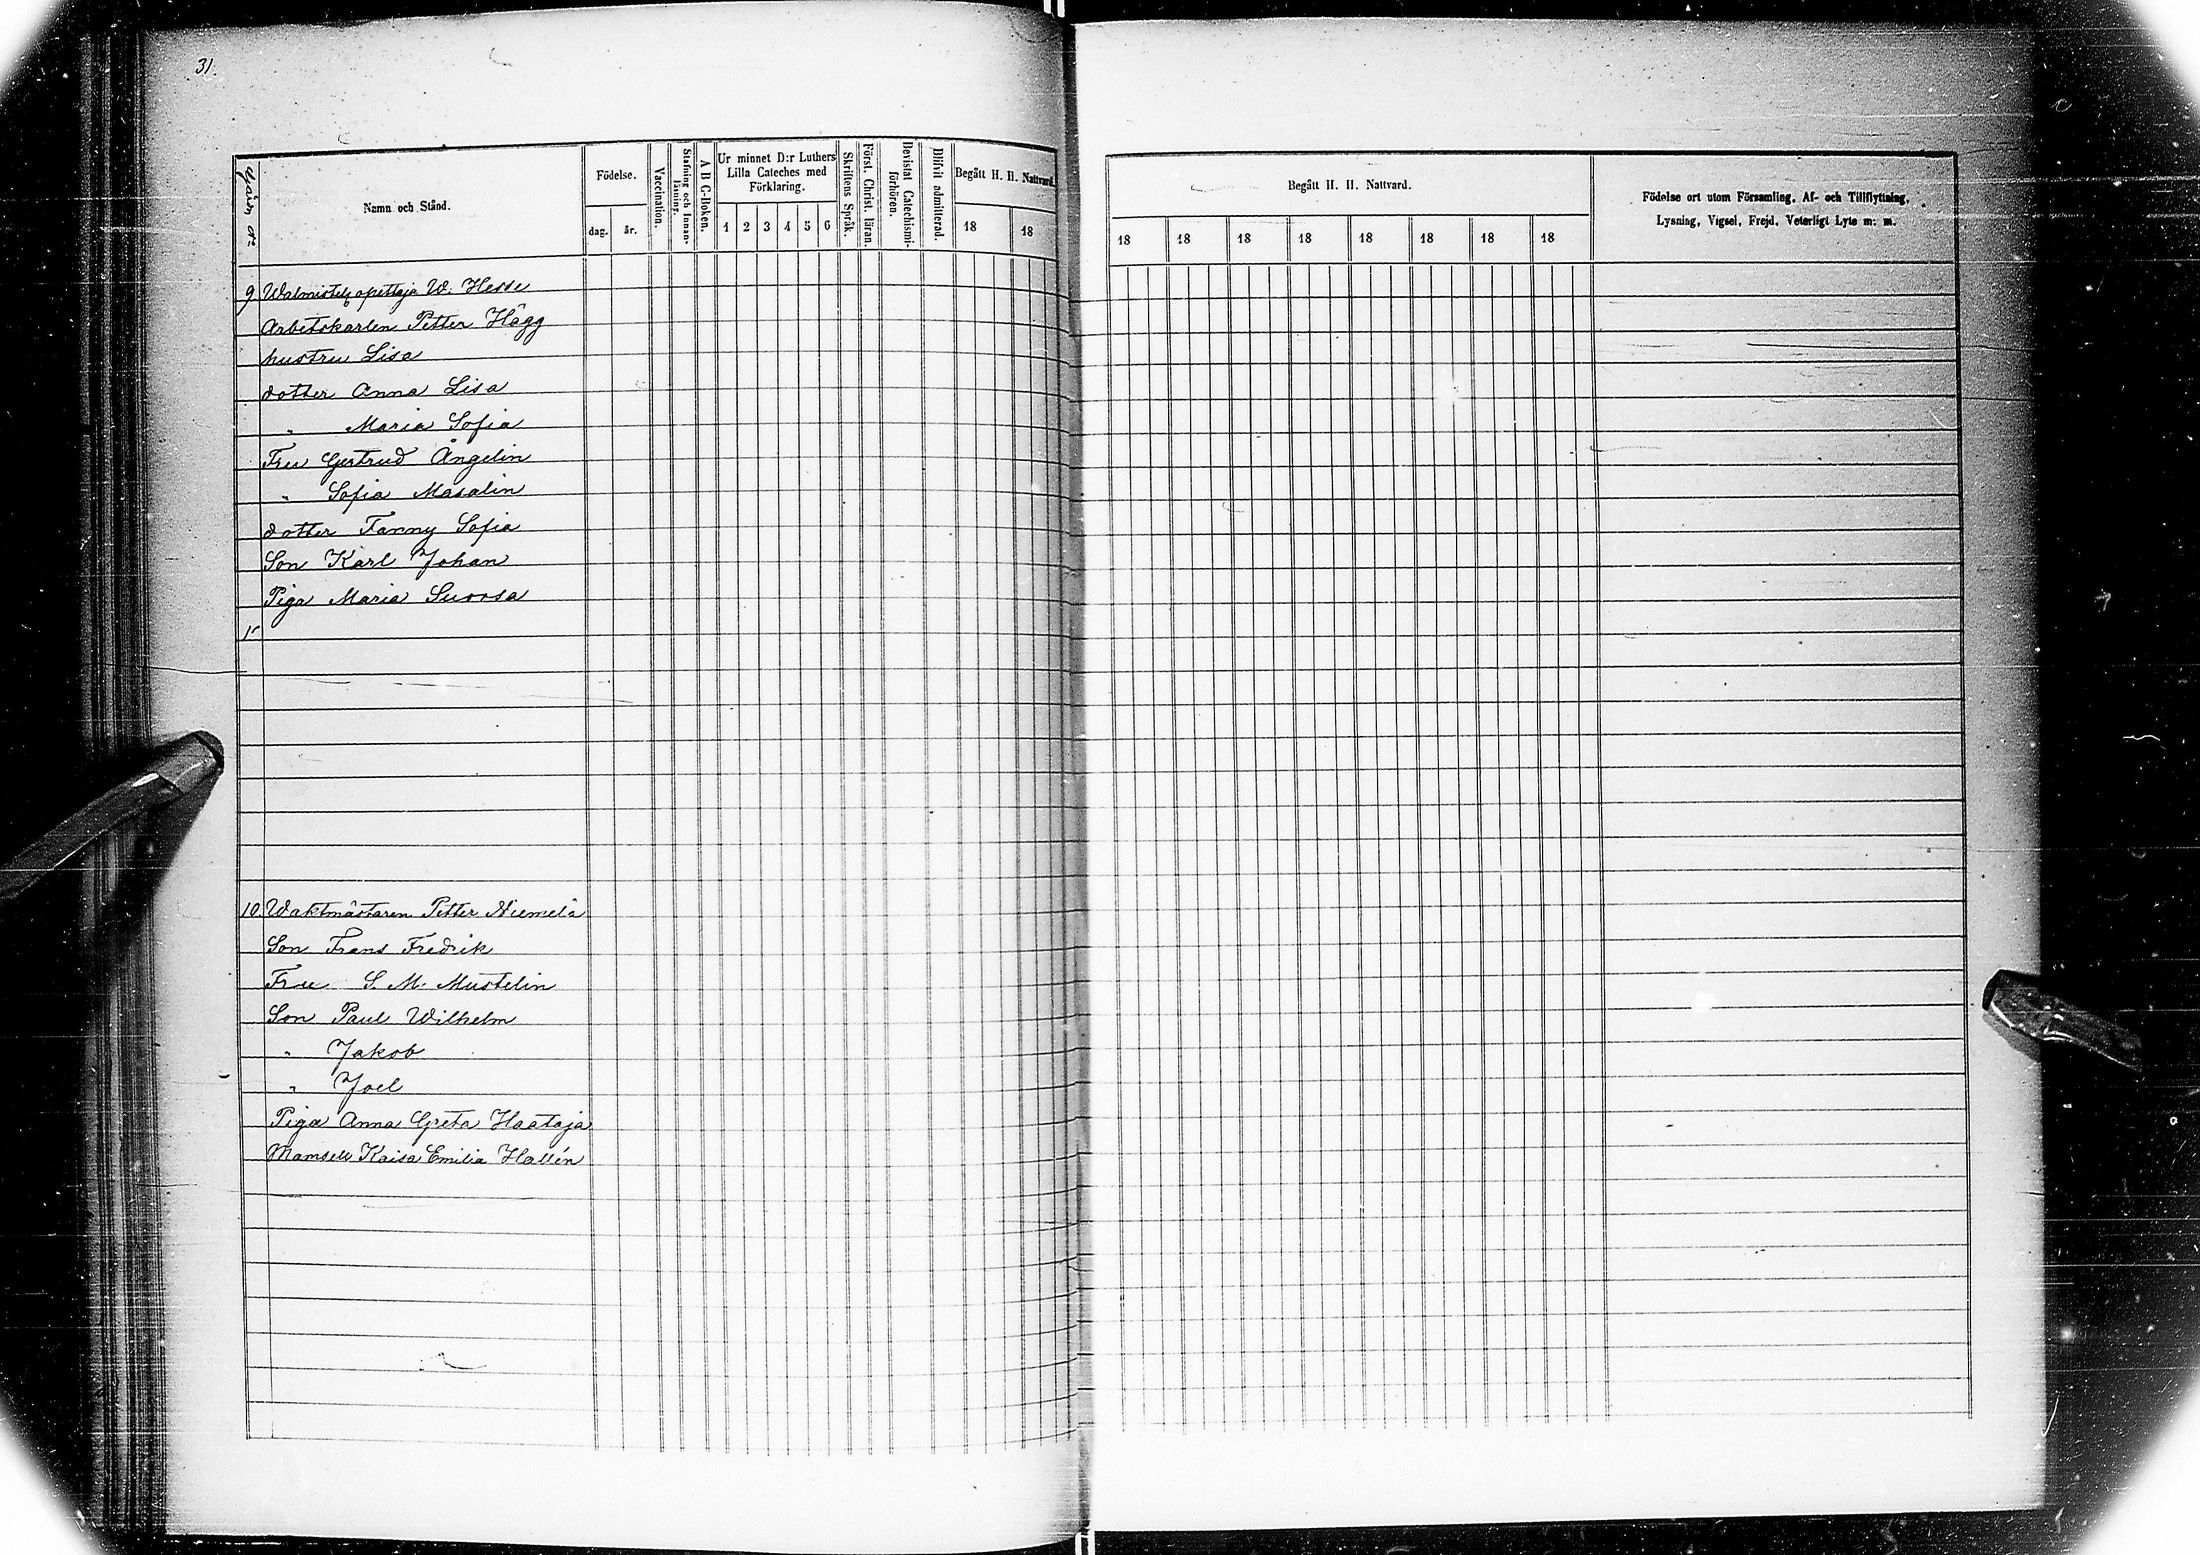 31.
Gård n:o
Namn och Stånd.
Födelse.
dag.
år.
Vaccination.
Stafning och Innanläsning.
A B C-Boken.
Ur minnet D:r Luthers
Lilla Cateches med
Förklaring.
1 2 3 4 5 6
Skriftens Språk.
Först. Christ. läran.
Bevistat Catechismi-
förhören.
Blifvit admitterad.
Begått H. H. Nattvard.
18 18
Begått H. H. Nattvard.
18 18 18 18 18 18 18 18
Födelse ort utom Församling, Af- och Tillflyttning,
Lysning, Vigsel, Frejd, Veterligt Lyte m. m.
9 W. Hesse
Arbetskarlen Petter Hägg
hustru Lisa
dotter Anna Lisa
" Maria Sofia
Fru Gertrud Ångelin
" Sofia Masalin
dotter Fanny Sofia
Son Karl Johan
Piga Maria Suorsa
10. Waktmästaren Petter Niemelä
Son Frans Fredrik
Fru S. M. Mustelin
Son Paul Wilhelm
" Jakob
" Joel
Piga Anna Greta Haataja
Mamsell Kaisa Emilia Hallén